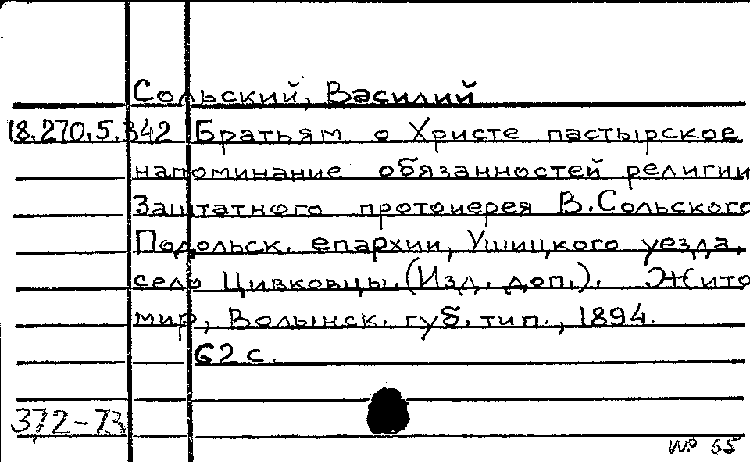 Сольский, Василий
18.270.5.342 Братьям о Христе пастырское
напоминание обязанностей религии
Заштатного протоиерея В. Сольского
Подольск. епархии, Ушицкого уезда,
село Цивковцы. (Изд. доп.). Жито
мир, Волынск. губ. тип., 1894.
62 с.
372-73